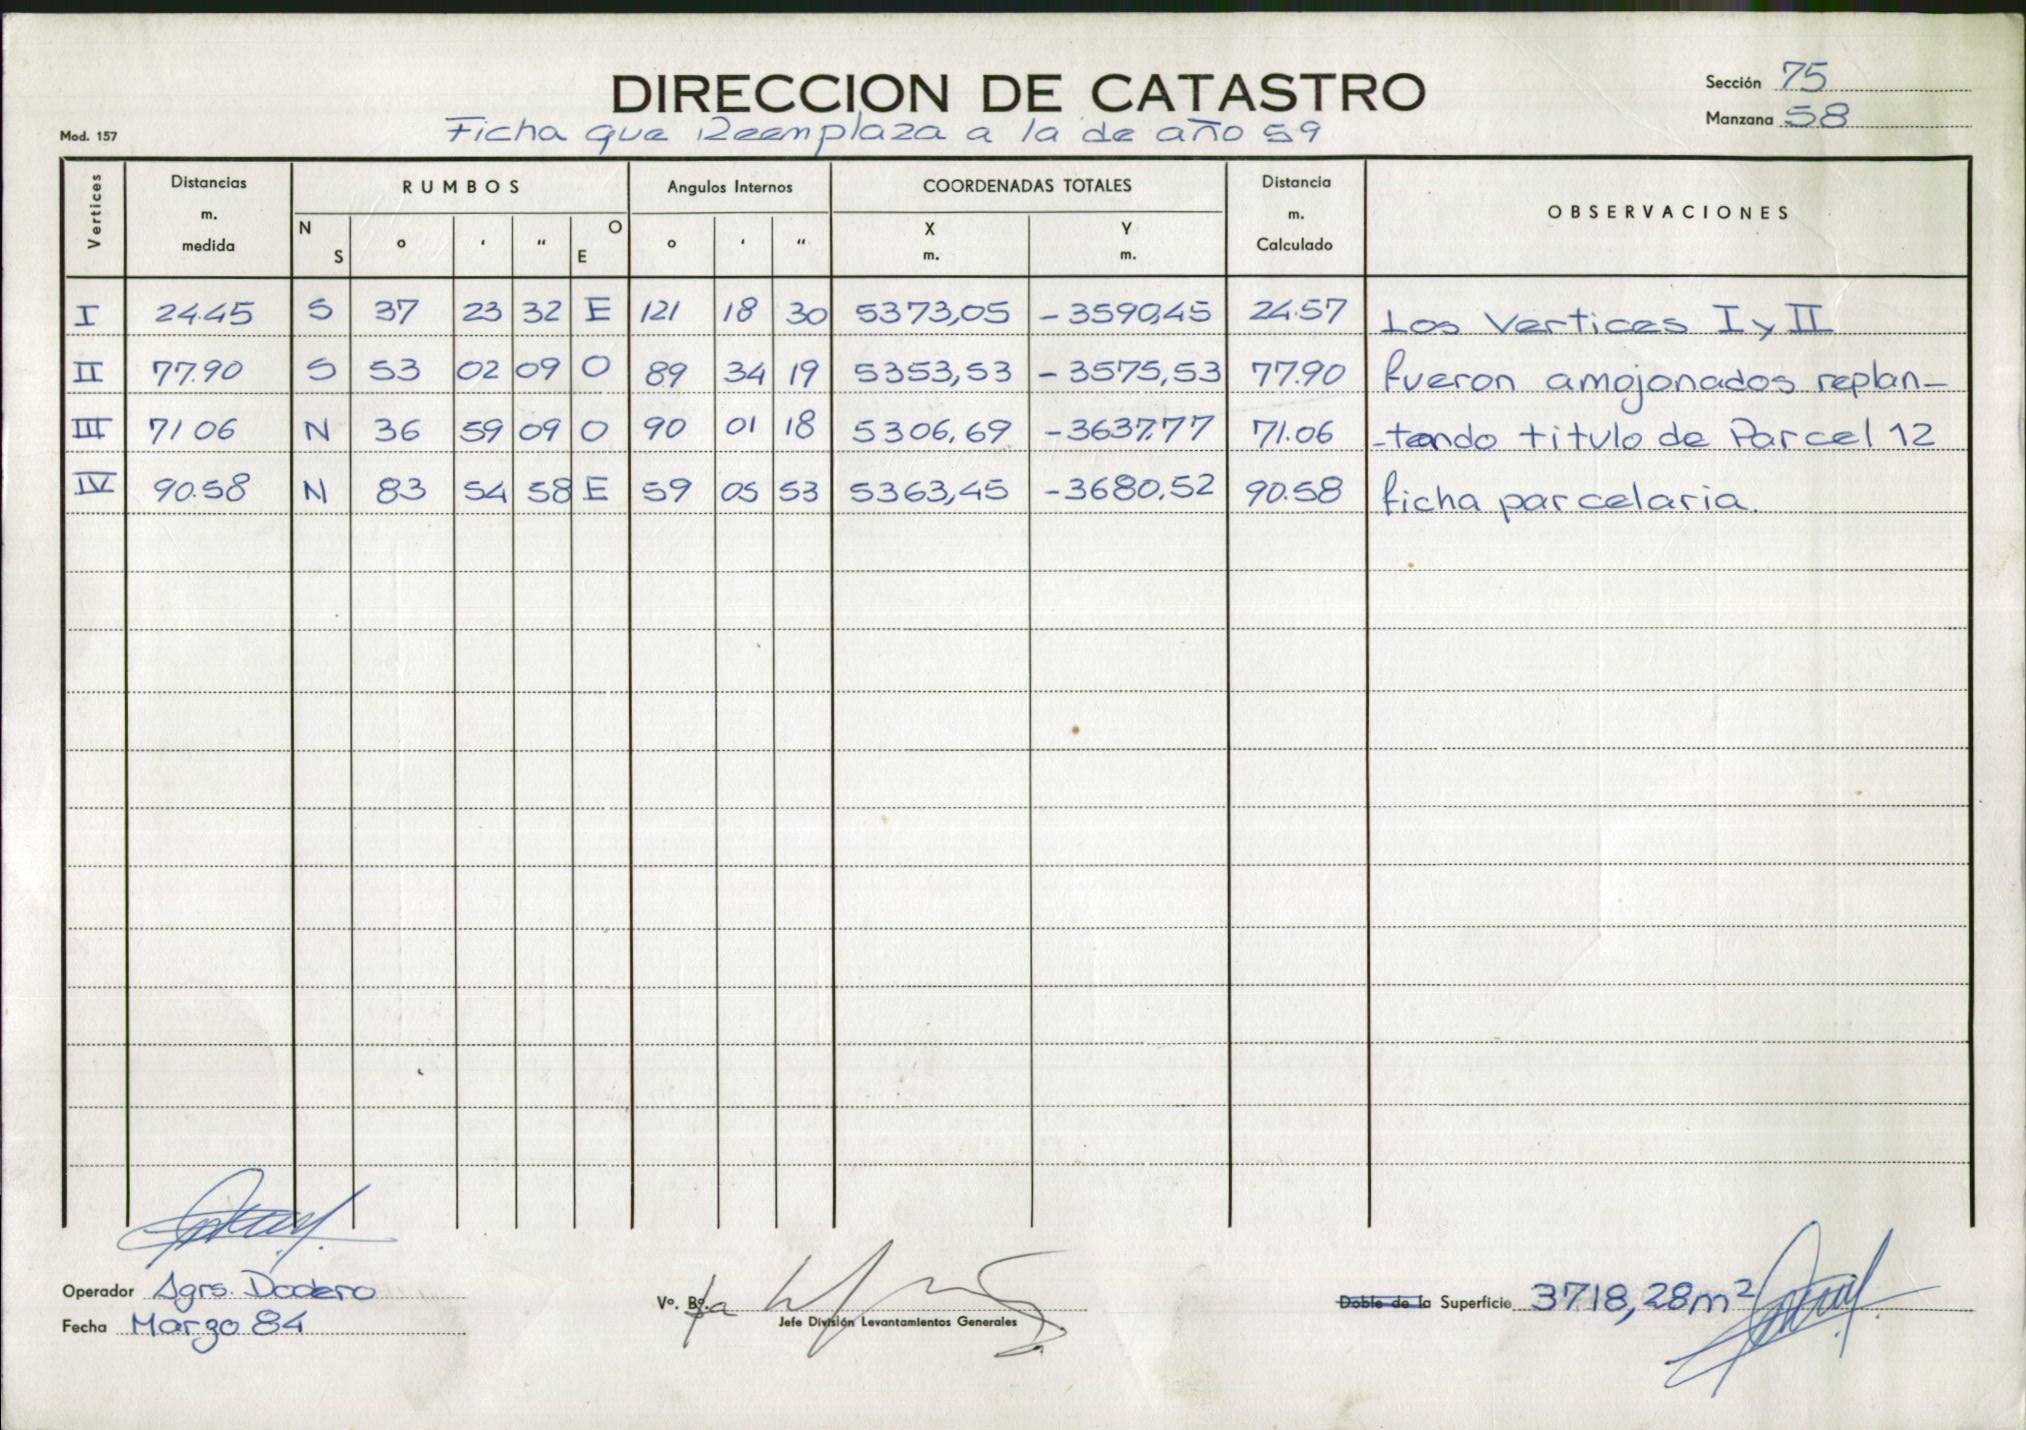 DIRECCION DE CATASTRO
Sección 75
Manzana 58
Mod. 157
Ficha que Reemplaza a la de año 59
Vertices Distancias m. medida RUMBOS Angulos Internos COORDENADAS TOTALES Distancia m. Calculado OBSERVACIONES
N S o ‘ “ O E o ‘ “ X m. Y m.
I 24.45 S 37 23 32 E 121 18 30 5373,05 -3590,45 24.57 Los Vertices I y II
II 77.90 S 53 02 09 O 89 34 19 5353,53 -3575,53 77.90 fueron amojonados replan-
III 71 06 N 36 59 09 O 90 01 18 5306,69 -3637.77 71.06 -tando titulo de Parcel 12
IV 90.58 N 83 54 58 E 59 05 53 5363,45 -3680,52 90.58 ficha parcelaria.
Operador Agrs. Dodero
Fecha Marzo 84
Vº. Bº.
Jefe División Levantamientos Generales
Doble de la Superficie 3718,28m²